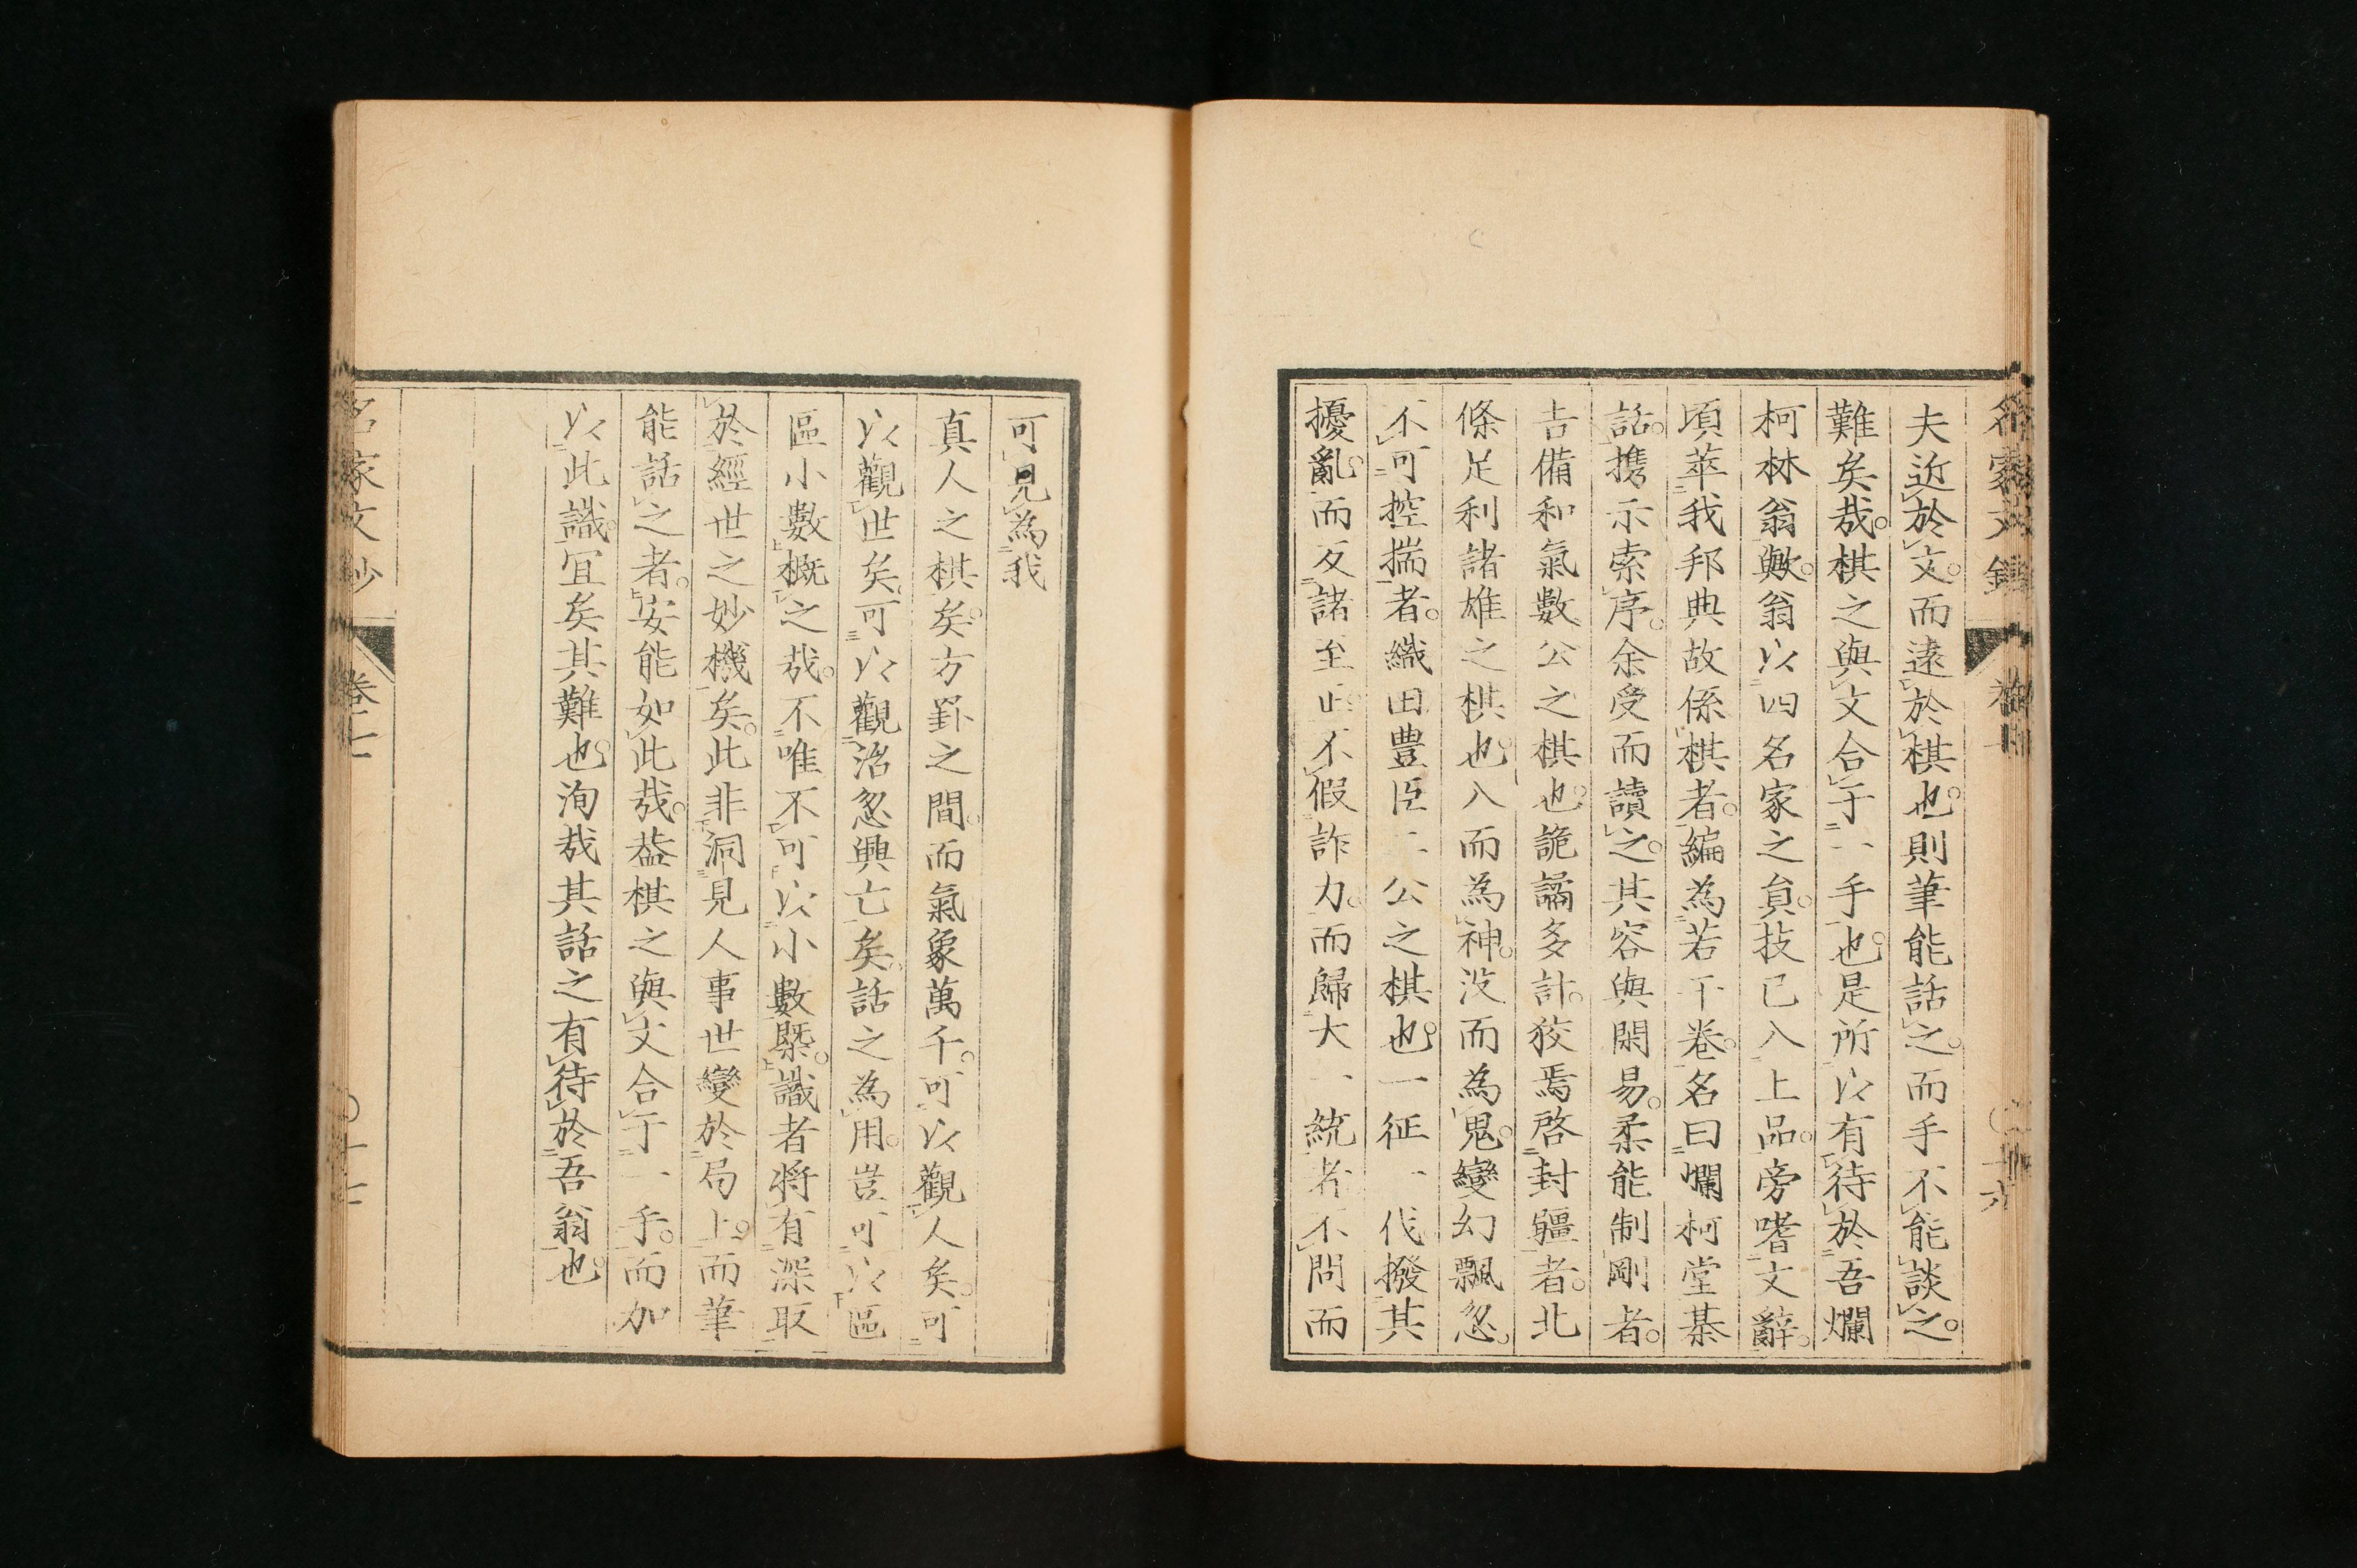 夫近於文。而遠於棋也。則筆能話之。而手不能談之。
難矣哉。棋之與文合于一手也。是所以有待於吾爛
柯林翁歟。翁以四名家之員。技已入上品。旁嗜文辭。
頃萃我邦典故係棋者。編為若干卷。名曰爛柯堂棊
話。携示索序。余受而讀之。其容與閑易。柔能制剛者。
吉備和氣數公之棋也。詭譎多計。狡焉啓封疆者。北
條足利諸雄之棋也。入而為神。沒而為鬼。變幻飄忽。
不可控揣者。織田豊臣二公之棋也。一征一伐。撥其
擾亂。而反諸至正。不假詐力。而歸大一統者。不問而
可見為我
真人之棋矣。方罫之間。而氣象萬千。可以觀人矣。可
以觀世矣。可以觀治忽興亡矣。話之為用。豈可以區
區小數概之哉。不唯不可以小數槩。識者將有深取
於經世之妙機矣。此非洞見人事世變於局上。而筆
能話之者。安能如此哉。葢棋之與文合于一手。而加
以此識。宜矣其難也。洵哉其話之有待於吾翁也。
名家文抄